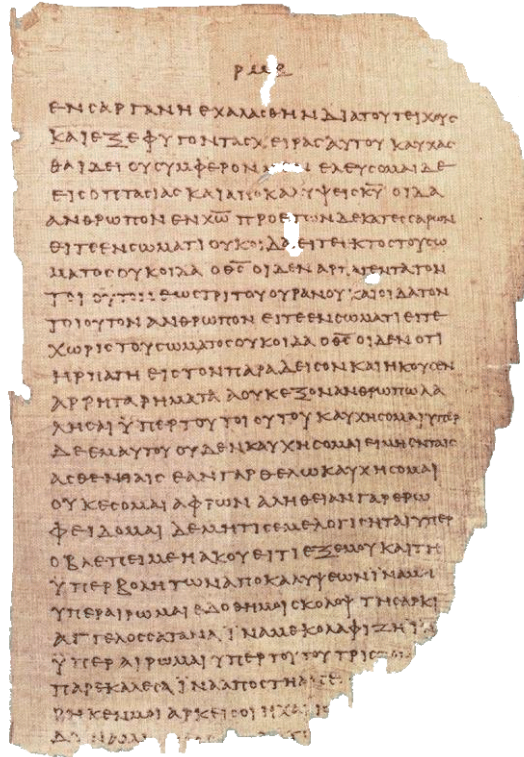 ΡΜΕ
ΕΝϹΑΡΓΑΝΗΕΧΑΛΑϹΘΗΝΔΙΑΤΟΥΤΕΙΧΟΥϹ
ΚΑΙΕΞΕΦΥΓΟΝΤΑϹΧΕΙΡΑϹΑΥΤΟΥΚΑΥΧΑϹ
ΘΑΙΔΕΙΟΥϹΥΜΦΕΡΟΝ ΕΛΕΥϹΟΜΑΙΔΕ
ΕΙϹΟΠΤΑϹΙΑϹΚΑΙΑΠΟΚΑΛΥΨΕΙϹΚ̅Υ̅ΟΙΔΑ
ΑΝΘΡΩΠΟΝΕΝΧ̅Ω̅ΠΡΟΕΤΩΝΔΕΚΑΤΕϹϹΑΡΩΝ
ΕΙΤΕΕΝϹΩΜΑΤΙΟΥΚΟΙΔΑΕΙΤΕΕΚΤΟϹΤΟΥϹΩ
ΜΑΤΟϹΟΥΚΟΙΔΑΟΘ̅Ϲ̅ΟΙΔΕΝΑΡΠΑΓΕΝΤΑΤΟΝ
ΤΟΙΟΥΤΟΝΕΩϹΤΡΙΤΟΥΟΥΡΑΝΟΥΚΑΙΟΙΔΑΤΟΝ
ΤΟΙΟΥΤΟΝΑΝΘΡΩΠΟΝΕΙΤΕΕΝϹΩΜΑΤΙΕΙΤΕ
ΧΩΡΙϹΤΟΥϹΩΜΑΤΟϹΟΥΚΟΙΔΑΟΘ̅Ϲ̅ΟΙΔΕΝΟΤΙ
ΗΡΠΑΓΗΕΙϹΤΟΝΠΑΡΑΔΕΙϹΟΝΚΑΙΗΚΟΥϹΕΝ
ΑΡΡΗΤΑΡΗΜΑΤΑΑΟΥΚΕΞΟΝΑΝΘΡΩΠΩΛΑ
ΛΗϹΑΙΫΠΕΡΤΟΥΤΟΙΟΥΤΟΥΚΑΥΧΗϹΟΜΑΙΥΠΕΡ
ΔΕΕΜΑΥΤΟΥΟΥΔΕΝΚΑΥΧΗϹΟΜΑΙΕΙΜΗΕΝΤΑΙϹ
ΑϹΘΕΝΕΙΑΙϹΕΑΝΓΑΡΘΕΛΩΚΑΥΧΗϹΟΜΑΙ
ΟΥΚΕϹΟΜΑΙΑΦΡΩΝΑΛΗΘΕΙΑΝΓΑΡΕΡΩ
ΦΕΙΔΟΜΑΙΔΕΜΗΤΙϹΕΜΕΛΟΓΙϹΗΤΑΙΥΠΕΡ
ΟΒΛΕΠΕΙΜΕΗΑΚΟΥΕΙΤΙΕΞΕΜΟΥΚΑΙΤΗ
ΫΠΕΡΒΟΛΗΤΩΝΑΠΟΚΑΛΥΨΕΩΝΪΝΑΜΗ
ΥΠΕΡΑΙΡΩΜΑΙΕΔΟΘΗΜΟΙϹΚΟΛΟΨΤΗϹΑΡΚΙ
ΑΓΓΕΛΟϹϹΑΤΑΝΑΪΝΑΜΕΚΟΛΑΦΙΖΗΪΝΑ
ΫΠΕΡΑΙΡΩΜΑΙΥΠΕΡΤΟΥΤΟΥΤΡΙϹ
ΠΑΡΕΚΑΛΕϹΑΪΝΑΑΠΟϹΤΗ
ΡΗΚΕΝΜΟΙΑΡΚΕΙϹΟΙΗΧΑΡΙϹ
ΔΥΝΑΜ